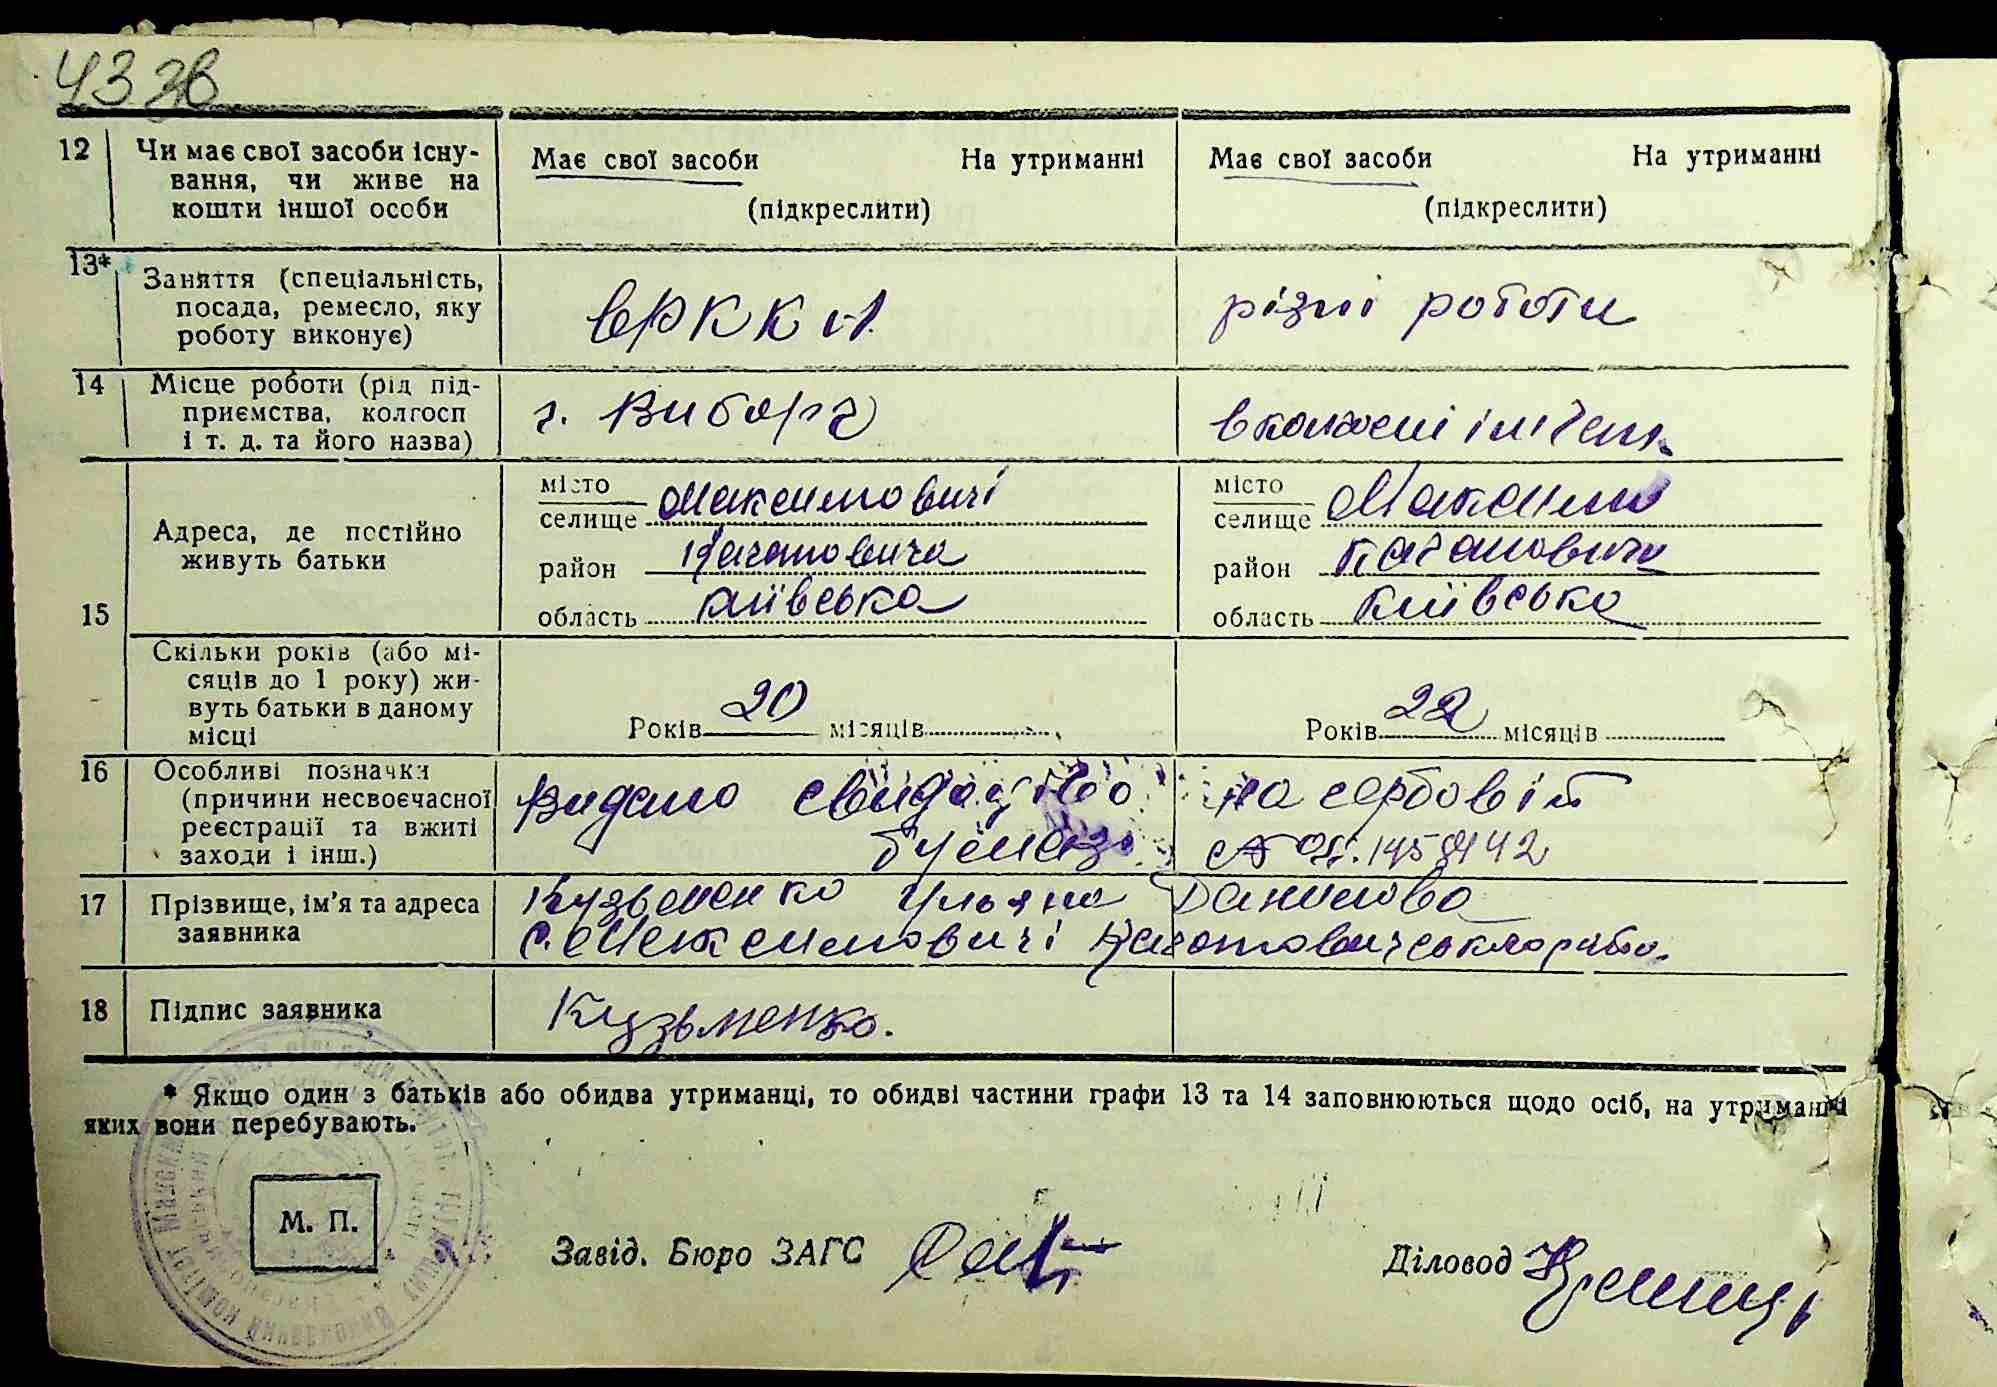 43 зв
12 Чи має свої засоби існу-
вання, чи живе на
кошти іншої особи
Має свої засоби На утриманні
(підкреслити)
Має свої засоби На утриманні
(підкреслити)
13* Заняття (спеціальність,
посада, ремесло, яку
роботу виконує)
в РККА
різні роботи
14 Місце роботи (рід під-
приємства, колгосп
і т. д. та його назва)
г. Виборг
в колгоспі
15 Адреса, де постійно
живуть батьки
місто
селище Максимовичі
район Кагановича
область київська
місто
селище Максимо
район Кагановича
область Київська
Скільки років (або мі-
сяців до 1 року) жи-
вуть батьки в даному
місці
Років 20 місяців
Років 22 місяців
16 Особливі позначки
(причини несвоєчасної
реєстрації та вжиті
заходи і інш.)
Видано свидоцтво на гербовій
17 Прізвище, ім'я та адреса
заявника
Кузьменко Ульяна Данилова
с. Максимовичі
18 Підпис заявника
Кузьменко.
* Якщо один з батьків або обидва утриманці, то обидві частини графи 13 та 14 заповнюються щодо осіб, на утриманні
яких вони перебувають.
М. П.
Завід. Бюро ЗАГС
Діловод